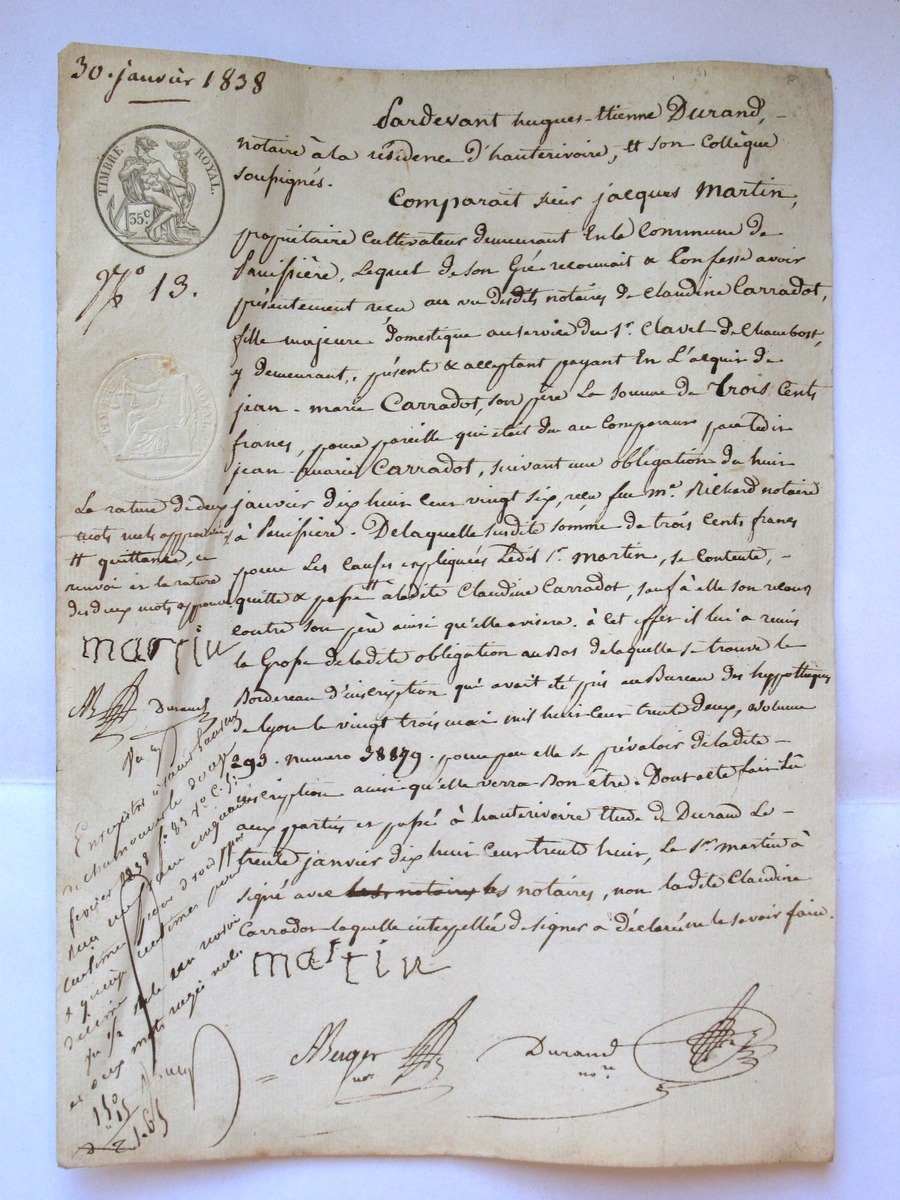 30. janvier 1838
TIMBRE ROYAL.
35 c.
N° 13.
Pardevant hugues-Etienne Durand,
notaire à la résidence d'hauterivoire, et son Collègue
soussignés.
Comparait sieur jacques Martin,
propriétaire Cultivateur demeurant En la Commune de
Lequel de son Gré reconnait & Confesse avoir
présentement reçu au vu desdits notaires de Claudine Carradot,
fille majeure domestique au service du Sr. Clavel de Chambost,
y demeurant, présente & acceptant payant En L'acquit de
jean-marie Carradot, son père La Somme de Trois Cents
francs, pour pareille qui était due au Comparant par ledit
jean-marie Carradot, suivant une obligation du huit
janvier dix huit cent vingt six, reçu feu me. Richard notaire
à De laquelle susdite somme de trois Cents francs
pour Les Causes expliquées Ledit Sr. Martin, se Contente,
quitte & à ladite Claudine Carradot, sauf à elle son recours
contre son père ainsi qu'elle avisera. à cet effet il lui a remis
la Grosse de ladite obligation au Bas de laquelle se trouve le
Bordereau d'inscription qui avait été pris au Bureau des hyppothèques
de Lyon le vingt trois mai mil huit cent trente deux, volume
293. numero pour par elle se prévaloir de ladite
inscription ainsi qu'elle verra Bon être. Dont acte fait Lû
aux parties et passé à hauterivoire Etude de Durand Le
trente janvier dix huit Cent trente huit, Le Sr. martin à
signé avec les notaires, non ladite Claudine
Carradot laquelle interpellée de signer a déclaré ne le savoir faire.
martin
Berger
nre
Durand
nore
La rature de deux
mots nuls approuvée
# quittance, ce
renvoi et la rature
des deux mots approuvés
martin
Durand
Enregistré à
février 1838 f° 83
1.65